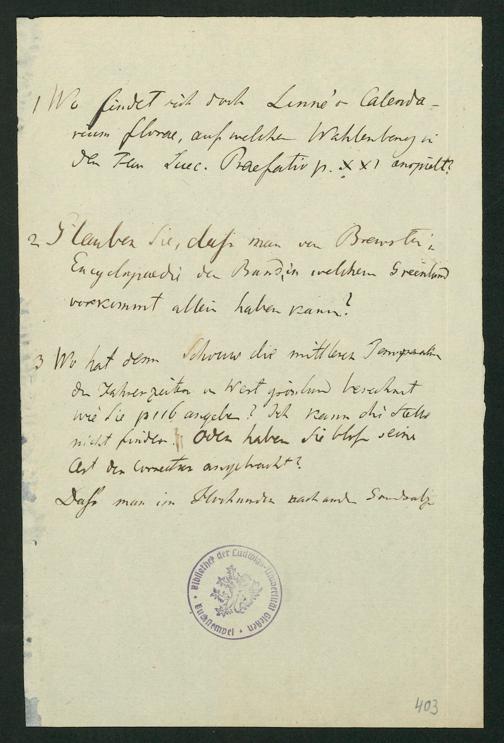 1 Wo findet sich doch Linné's Calenda-
rium florae, auf welches Wahlenberg in
der Flora Suec. Praefatio p. XXI anspielt?
2 Glauben Sie, daß man von Brewster's
Encyclopaedie den Band, in welchem Greenland
vorkommt allein haben kann?
3 Wo hat denn Schouw die mittleren Temperaturen
der Jahreszeiten in West grönland berechnet
wie Sie p 116 angeben? Ich kann die Stelle
nicht finden. Oder haben Sie bloß seine
Art der Correction angebracht?
Daß man im
Bibliothek der Ludwigs-Universität Gießen
• Buchstempel •
403